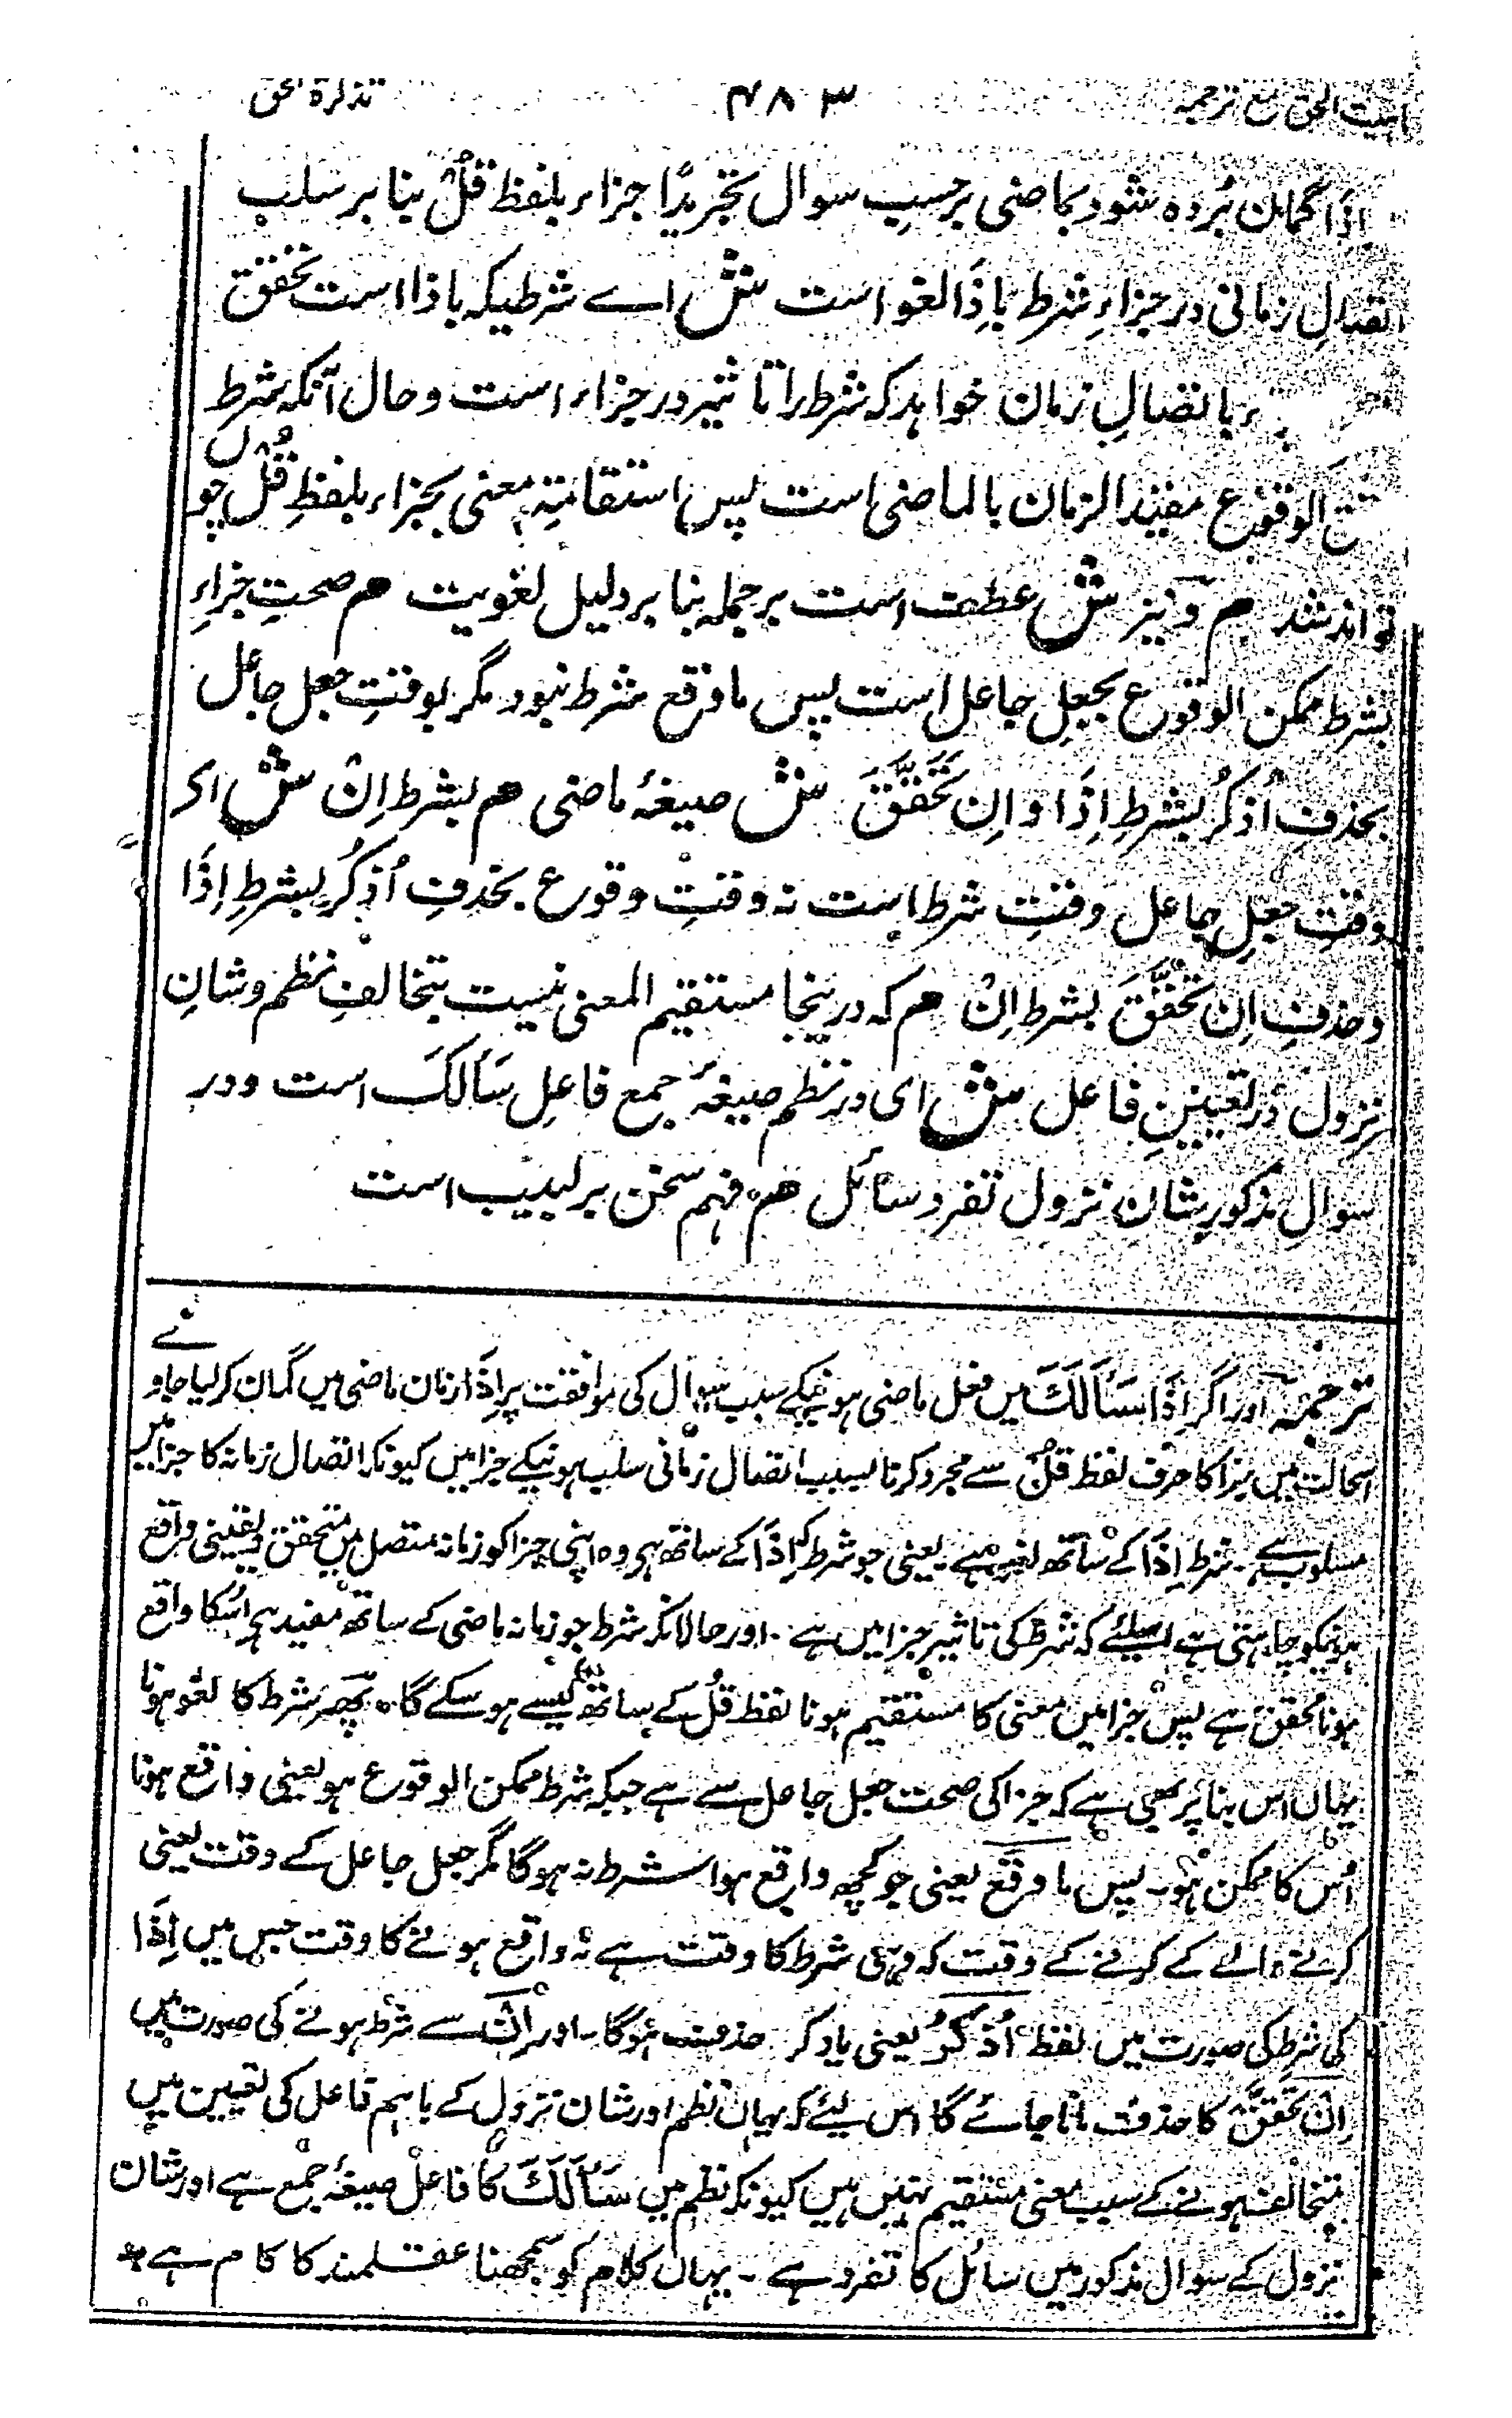 الحق مع ترجمہ ۴۸۳ تذکرۃ الحق
اِذَا گمان بُردہ شود بماضی برحسبِ سوال تجریدًا جزاء بلفظ قُلْ بنا بر سلب
اتصالِ زمانی در جزاءِ شرط باِذَا لغو است ش اے شرطیکہ باذا است تحقق
باتصالِ زمان خواہد کہ شرط را تاثیر در جزاء است و حال آنکہ شرط
الوقوع مقید الزمان بالماضی است پس استقامتِ معنی بجزاء بلفظِ قُل چو
تواند شد م و نیز ش عطف است بر جملہ بنا بر دلیل لغویت م صحتِ جزاءِ
بشرط ممکن الوقوع بجعلِ جاعل است پس ما وقع شرط نبود مگر بوقتِ جعل جاعل
بحذفِ اُذکُر بشرطِ اِذَا و اِن تَحَقَّقَ ش صیغۂ ماضی م بشرط اِنْ ش ای
وقتِ جعلِ جاعل وقتِ شرط است نہ وقتِ وقوع بحذفِ اُذکُر بشرطِ اِذَا
و حذفِ اِن تَحَقَّقَ بشرط اِنْ م کہ درینجا مستقیم المعنی نیست بتخالفِ نظم و شانِ
نزول در تعیینِ فاعل ش ای در نظم صیغۂ جمع فاعلِ سَأَلَكَ است و در
سوالِ مذکور شان نزول تفرد سائل م فہم سخن بر لبیب است
ترجمہ اور اگر اِذَا سَأَلَكَ میں فعل ماضی ہونیکے سبب سوال کی موافقت پر اِذَا زمان ماضی میں گمان کر لیا جاوے
اسحالت میں جزا کا حرف لفظ قُلْ سے مجرد کرنا بسبب اتصال زمانی سلب ہونیکے جزا میں کیونکہ اتصال زمانہ کا جزا میں
مسلوب ہے۔ شرط اِذَا کے ساتھ لغو ہے۔ یعنی جو شرط کہ اِذَا کے ساتھ ہی وہ اپنی جزا کو زمانہ متصل میں متحقق و یقینی واقع
ہونیکو چاہتی ہے اسلئے کہ شرط کی تاثیر جزا میں ہے۔ اور حالانکہ شرط جو زمانہ ماضی کے ساتھ مقید ہی اُسکا واقع
ہونا محقق ہے پس جزا میں معنی کا مستقیم ہونا لفظ قُل کے ساتھ کیسے ہو سکے گا۔ پھر شرط کا لغو ہونا
یہاں اس بنا پر بھی ہے کہ جزا کی صحت جعل جاعل سے ہے جبکہ شرط ممکن الوقوع ہو یعنی واقع ہونا
اُس کا ممکن ہو۔ پس ما وقع یعنی جو کچھ واقع ہوا شرط نہ ہوگا مگر جعل جاعل کے وقت یعنی
کرنے والے کے کرنے کے وقت کہ وہی شرط کا وقت ہے نہ واقع ہونے کا وقت جس میں اِذَا
کی شرط کی صورت میں لفظ اُذکُرْ یعنی یاد کر حذف ہوگا۔ اور اِنْ سے شرط ہونے کی صورت میں
اِن تَحَقَّقَ کا حذف مانا جائے گا اس لئے کہ یہاں نظم اور شان نزول کے باہم فاعل کی تعیین میں
متخالف ہونے کے سبب معنی مستقیم نہیں ہیں کیونکہ نظم میں سَأَلَكَ کا فاعل صیغۂ جمع ہے اور شان
نزول کے سوال مذکور میں سائل کا تفرد ہے۔ یہاں کلام کو سمجھنا عقلمند کا کام ہے